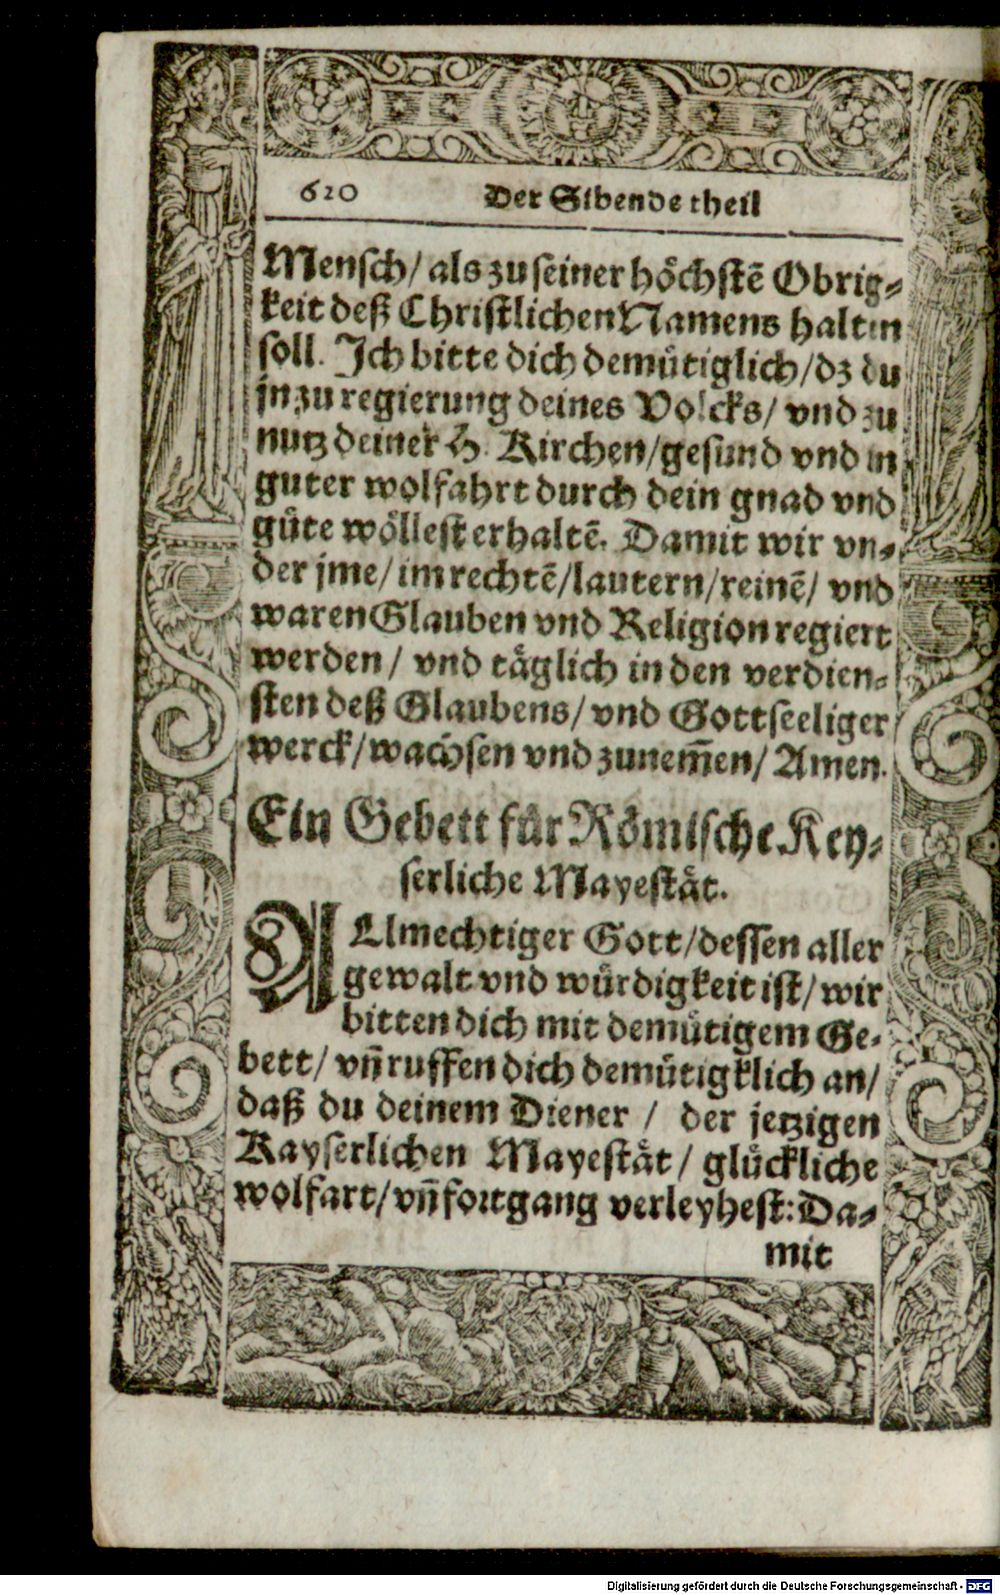 620 Der Sibende theil
Mensch/ als zu seiner höchstē Obrig⸗
keit deß Christlichen Namens halten
soll. Ich bitte dich demütiglich/ dz du
jn zu regierung deines Volcks/ vnd zu
nutz deiner H. Kirchen/ gesund vnd in
guter wolfahrt durch dein gnad vnd
güte wöllest erhaltē. Damit wir vn⸗
der jme/ im rechtē/ lautern/ reinē/ vnd
waren Glauben vnd Religion regiert
werden/ vnd täglich in den verdien⸗
sten deß Glaubens/ vnd Gottseeliger
werck/ wachsen vnd zunem̄en/ Amen.
Ein Gebett für Römische Key⸗
serliche Mayestät.
ALlmechtiger Gott/ dessen aller
gewalt vnd würdigkeit ist/ wir
bitten dich mit demütigem Ge⸗
bett/ vn̄ ruffen dich demütigklich an/
daß du deinem Diener/ der jetzigen
Kayserlichen Mayestät/ glückliche
wolfart/ vn̄ fortgang verleyhest: Da⸗
mit
Digitalisierung gefördert durch die Deutsche Forschungsgemeinschaft - DFG